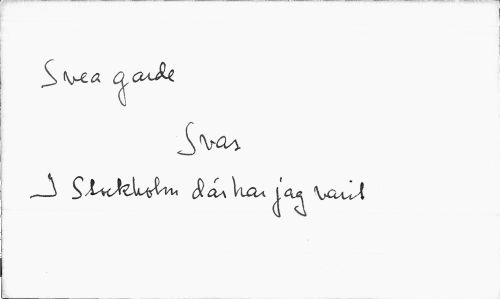 Svea garde
Svas
I Stockholm där har jag varit